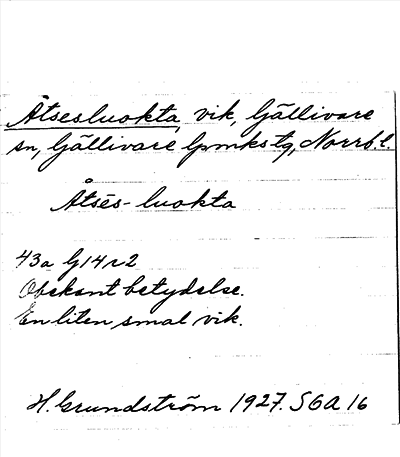 Åtsesluokta, vik, Gällivare
sn, Gällivare lpmkstg, Norrb. l.
Åtsēs-luokta
43a G14r2
Obekant betydelse.
En liten smal vik.
H. Grundström 1927. SGA 16